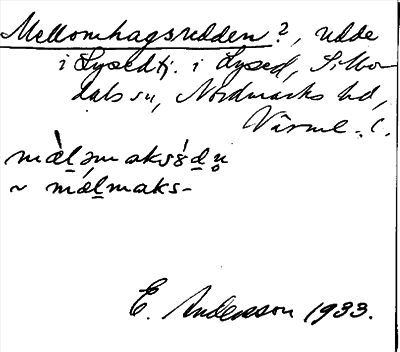 Mellomhagsudden?, udde
i Lysedtj. i Lysed, Silbo-
dals sn, Nordmarks hd,
Värml. l.
mæ̀l̠əmaksʒ̀d̠n̥
~ mæ̀l̠maks-
E. Andersson 1933.